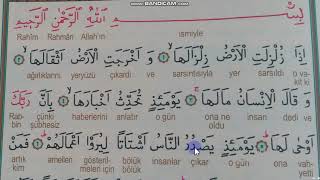 WWW.BANDICAM.COM
بِسْمِ اللّٰهِ الرَّحْمٰنِ الرَّحِيمِ
Rahîm Rahmân Allah'ın ismiyle
اِذَا زُلْزِلَتِ الْاَرْضُ زِلْزَالَهَا وَ اَخْرَجَتِ الْاَرْضُ اَثْقَالَهَا
ağırlıklarını yeryüzü çıkardı ve sarsıntısıyla yer sarsıldı o vakit ki
وَ قَالَ الْاِنْسَانُ مَالَهَا يَوْمَئِذٍ تُحَدِّثُ اَخْبَارَهَا بِاَنَّ رَبَّكَ
Rabbin şüphesiz haberlerini anlatır o gün ona ne oluyor insan dedi ve
اَوْحٰى لَهَا يَوْمَئِذٍ يَصْدُرُ النَّاسُ اَشْتَاتًا لِيُرَوْا اَعْمَالَهُمْ فَمَنْ
artık kim amelleri gösterilmeleri için bölük bölük insanlar çıkar o gün ona vahyetti